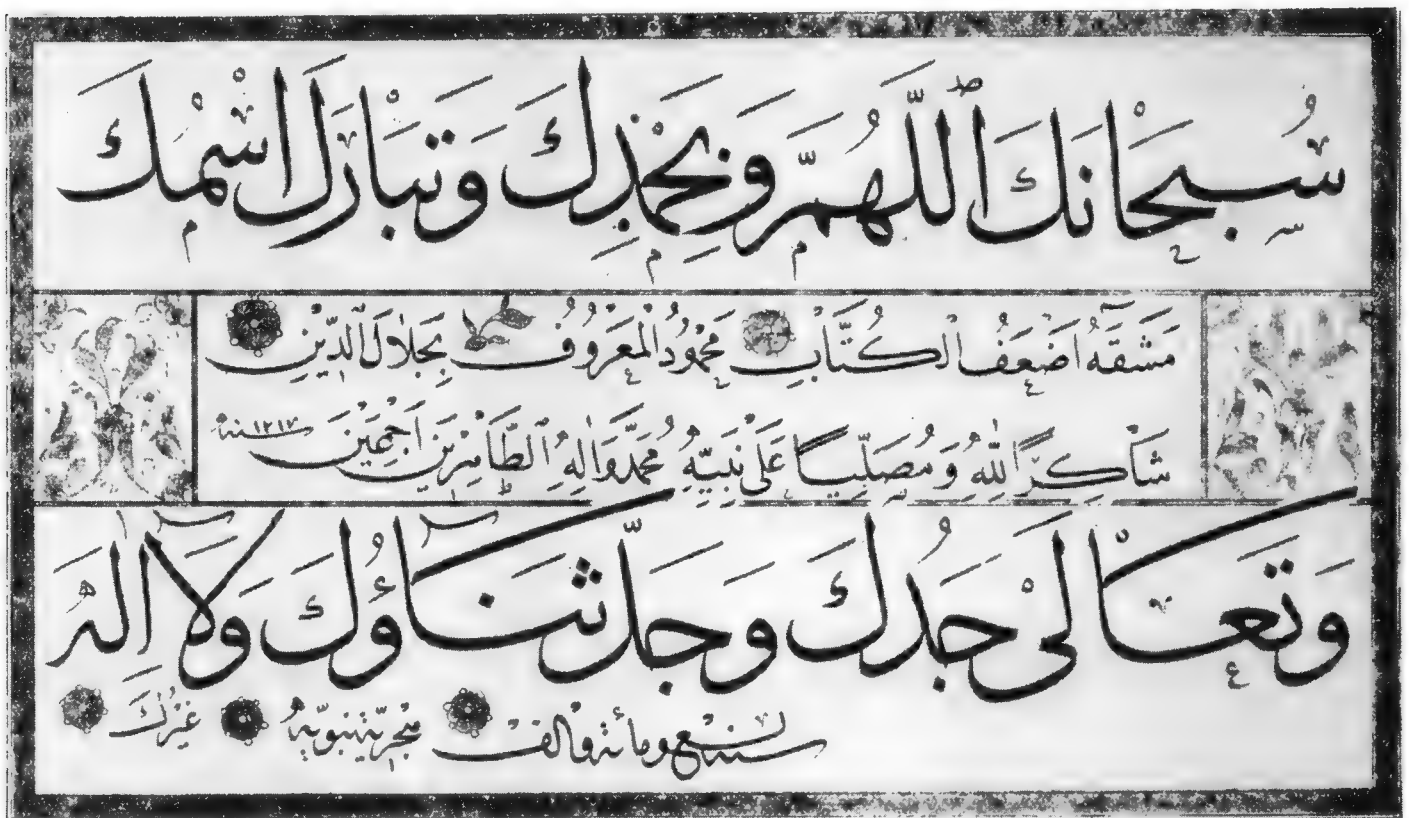 سُبْحَانَكَ ٱللّٰهُمَّ وَبِحَمْدِكَ وَتَبَارَكَ اسْمُكَ
مَشَقَهُ اَضْعَفُ الْكُتَّابِ مَحْمُودُ الْمَعْرُوفُ بِجَلَالِ الدِّينِ
شَاكِرًا لِلّٰهِ وَمُصَلِّيًا عَلَى نَبِيِّهِ مُحَمَّدٍ وَاٰلِهِ الطَّاهِرِينَ اَجْمَعِينَ سنة ١٢١٧
وَتَعَالَى جَدُّكَ وَجَلَّ ثَنَاؤُكَ وَلَا اِلٰهَ
سنة ومائة والف هجرية نبوية غَيْرُكَ